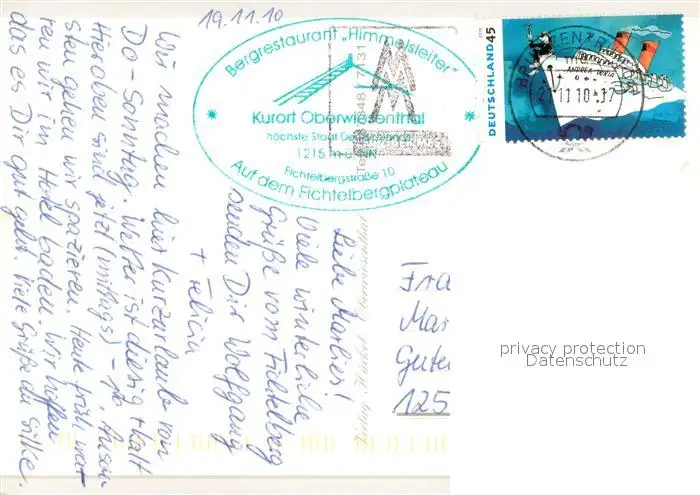 19.11.10
Bergrestaurant „Himmelsleiter"
Kurort Oberwiesenthal
höchste Stadt Deutschlands
1215 m ü. NN
Fichtelbergstraße 10
Auf dem Fichtelbergplateau
DEUTSCHLAND 45
ANDREA DORIA
BRIEFZENTRUM
11.10-17
Liebe Marlies!
Viele winterliche
Grüße vom Fichtelberg
senden Dir Wolfgang
+ Felicia
Wir machen hier Kurzurlaub von
Do-Sonntag. Wetter ist diesig + kalt
Hier oben sind jetzt (mittags) -1°.
sten gehen wir spazieren. Heute früh wa-
ren wir im Hotel baden. Wir hoffen
das es Dir gut geht. Viele Grüße Silke.
Fra
Mar
Guter
125
privacy protection
Datenschutz